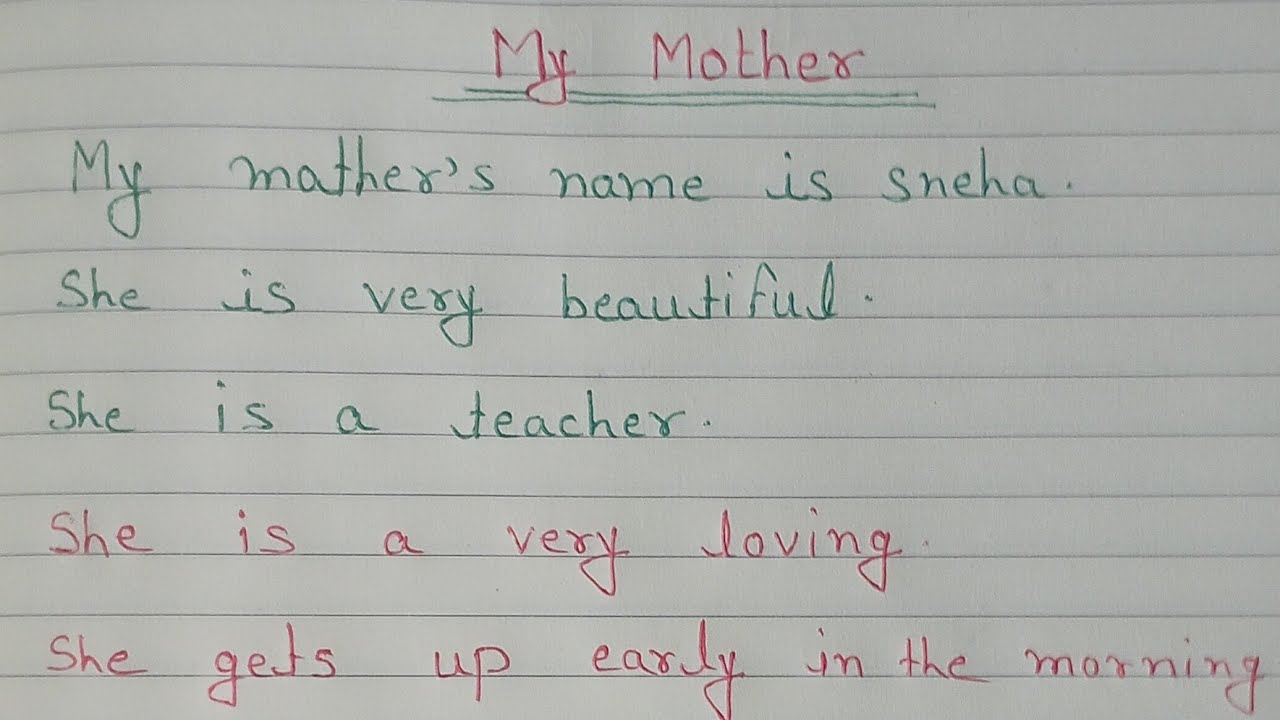 My Mother
My mather's name is sneha.
She is very beautiful.
She is a teacher.
She is a very loving.
She gets up early in the morning